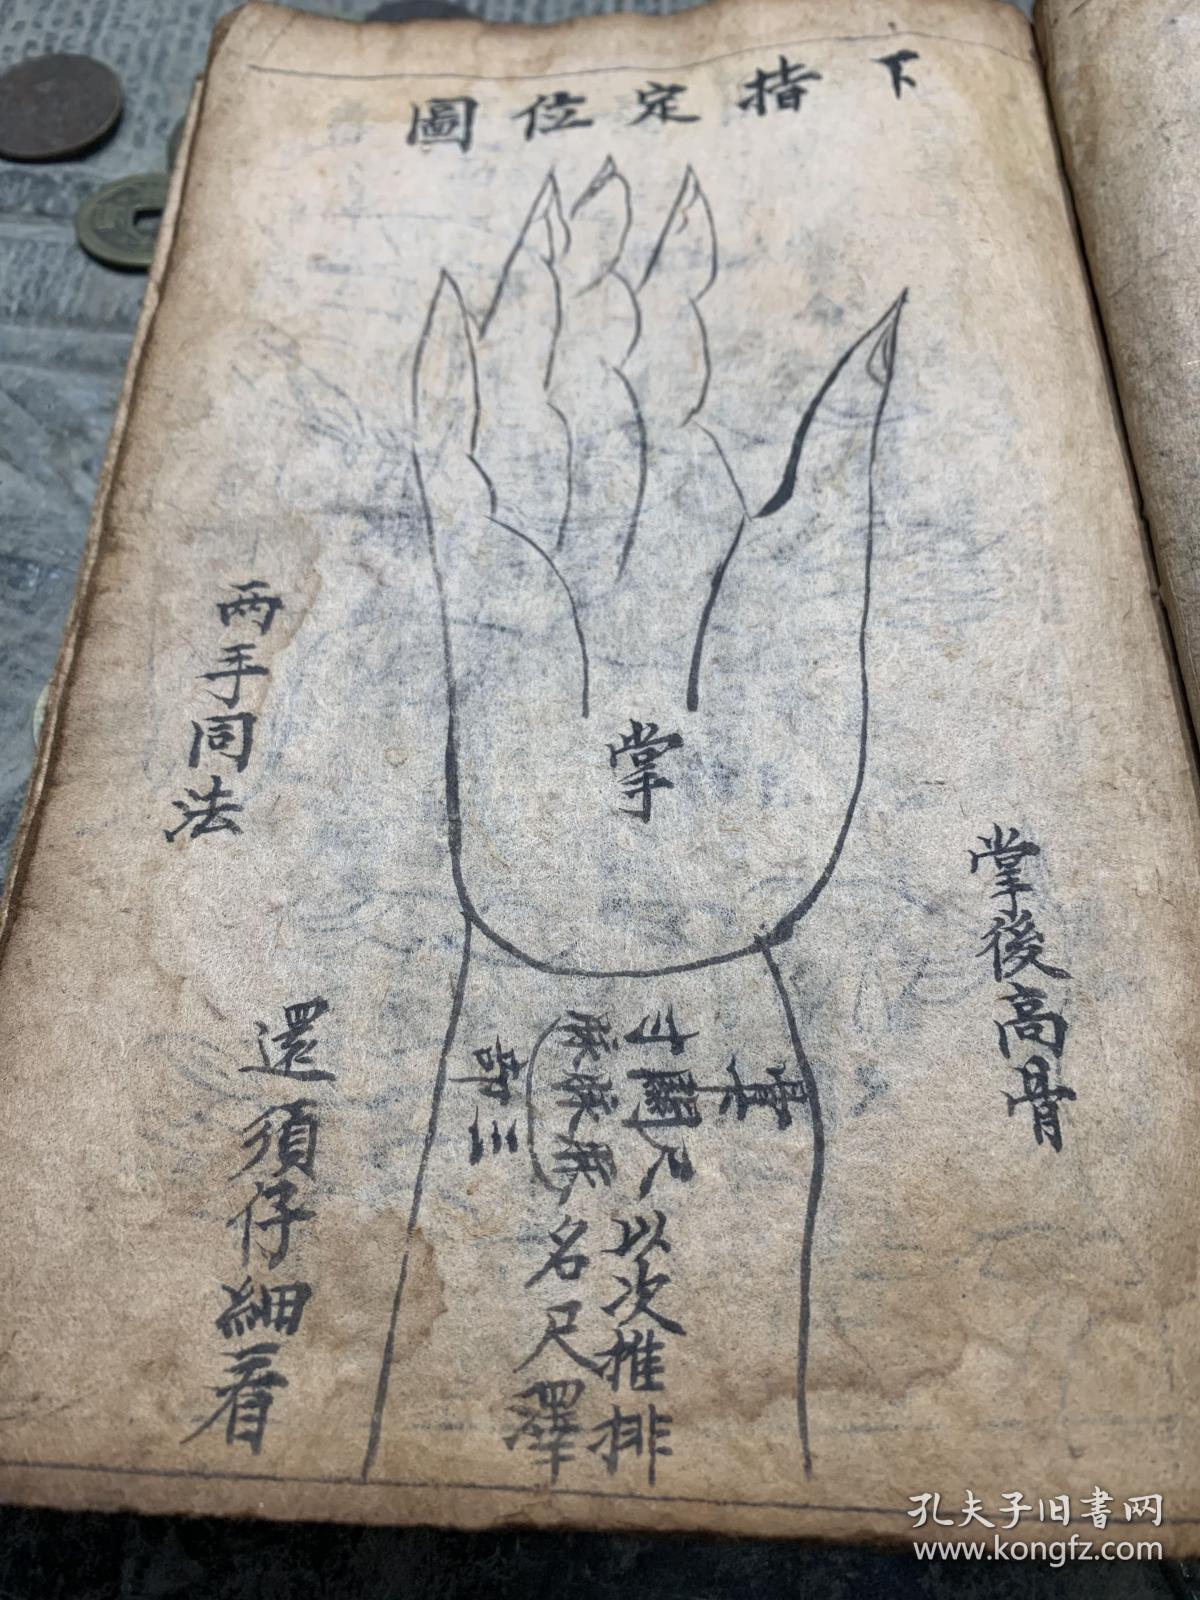 下指定位圖
掌後高骨
掌
寸關尺以次推排
名尺澤
三部
兩手同法
還須仔細看
孔夫子旧書网
www.kongfz.com